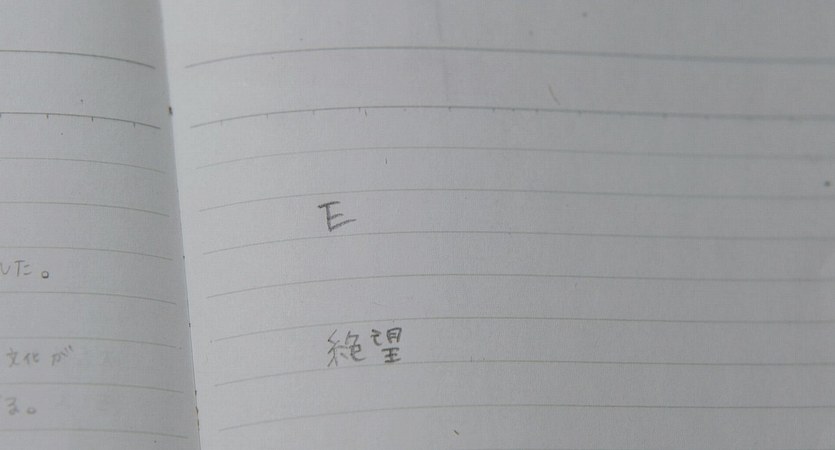 した。
文化が
る。
E
絶望